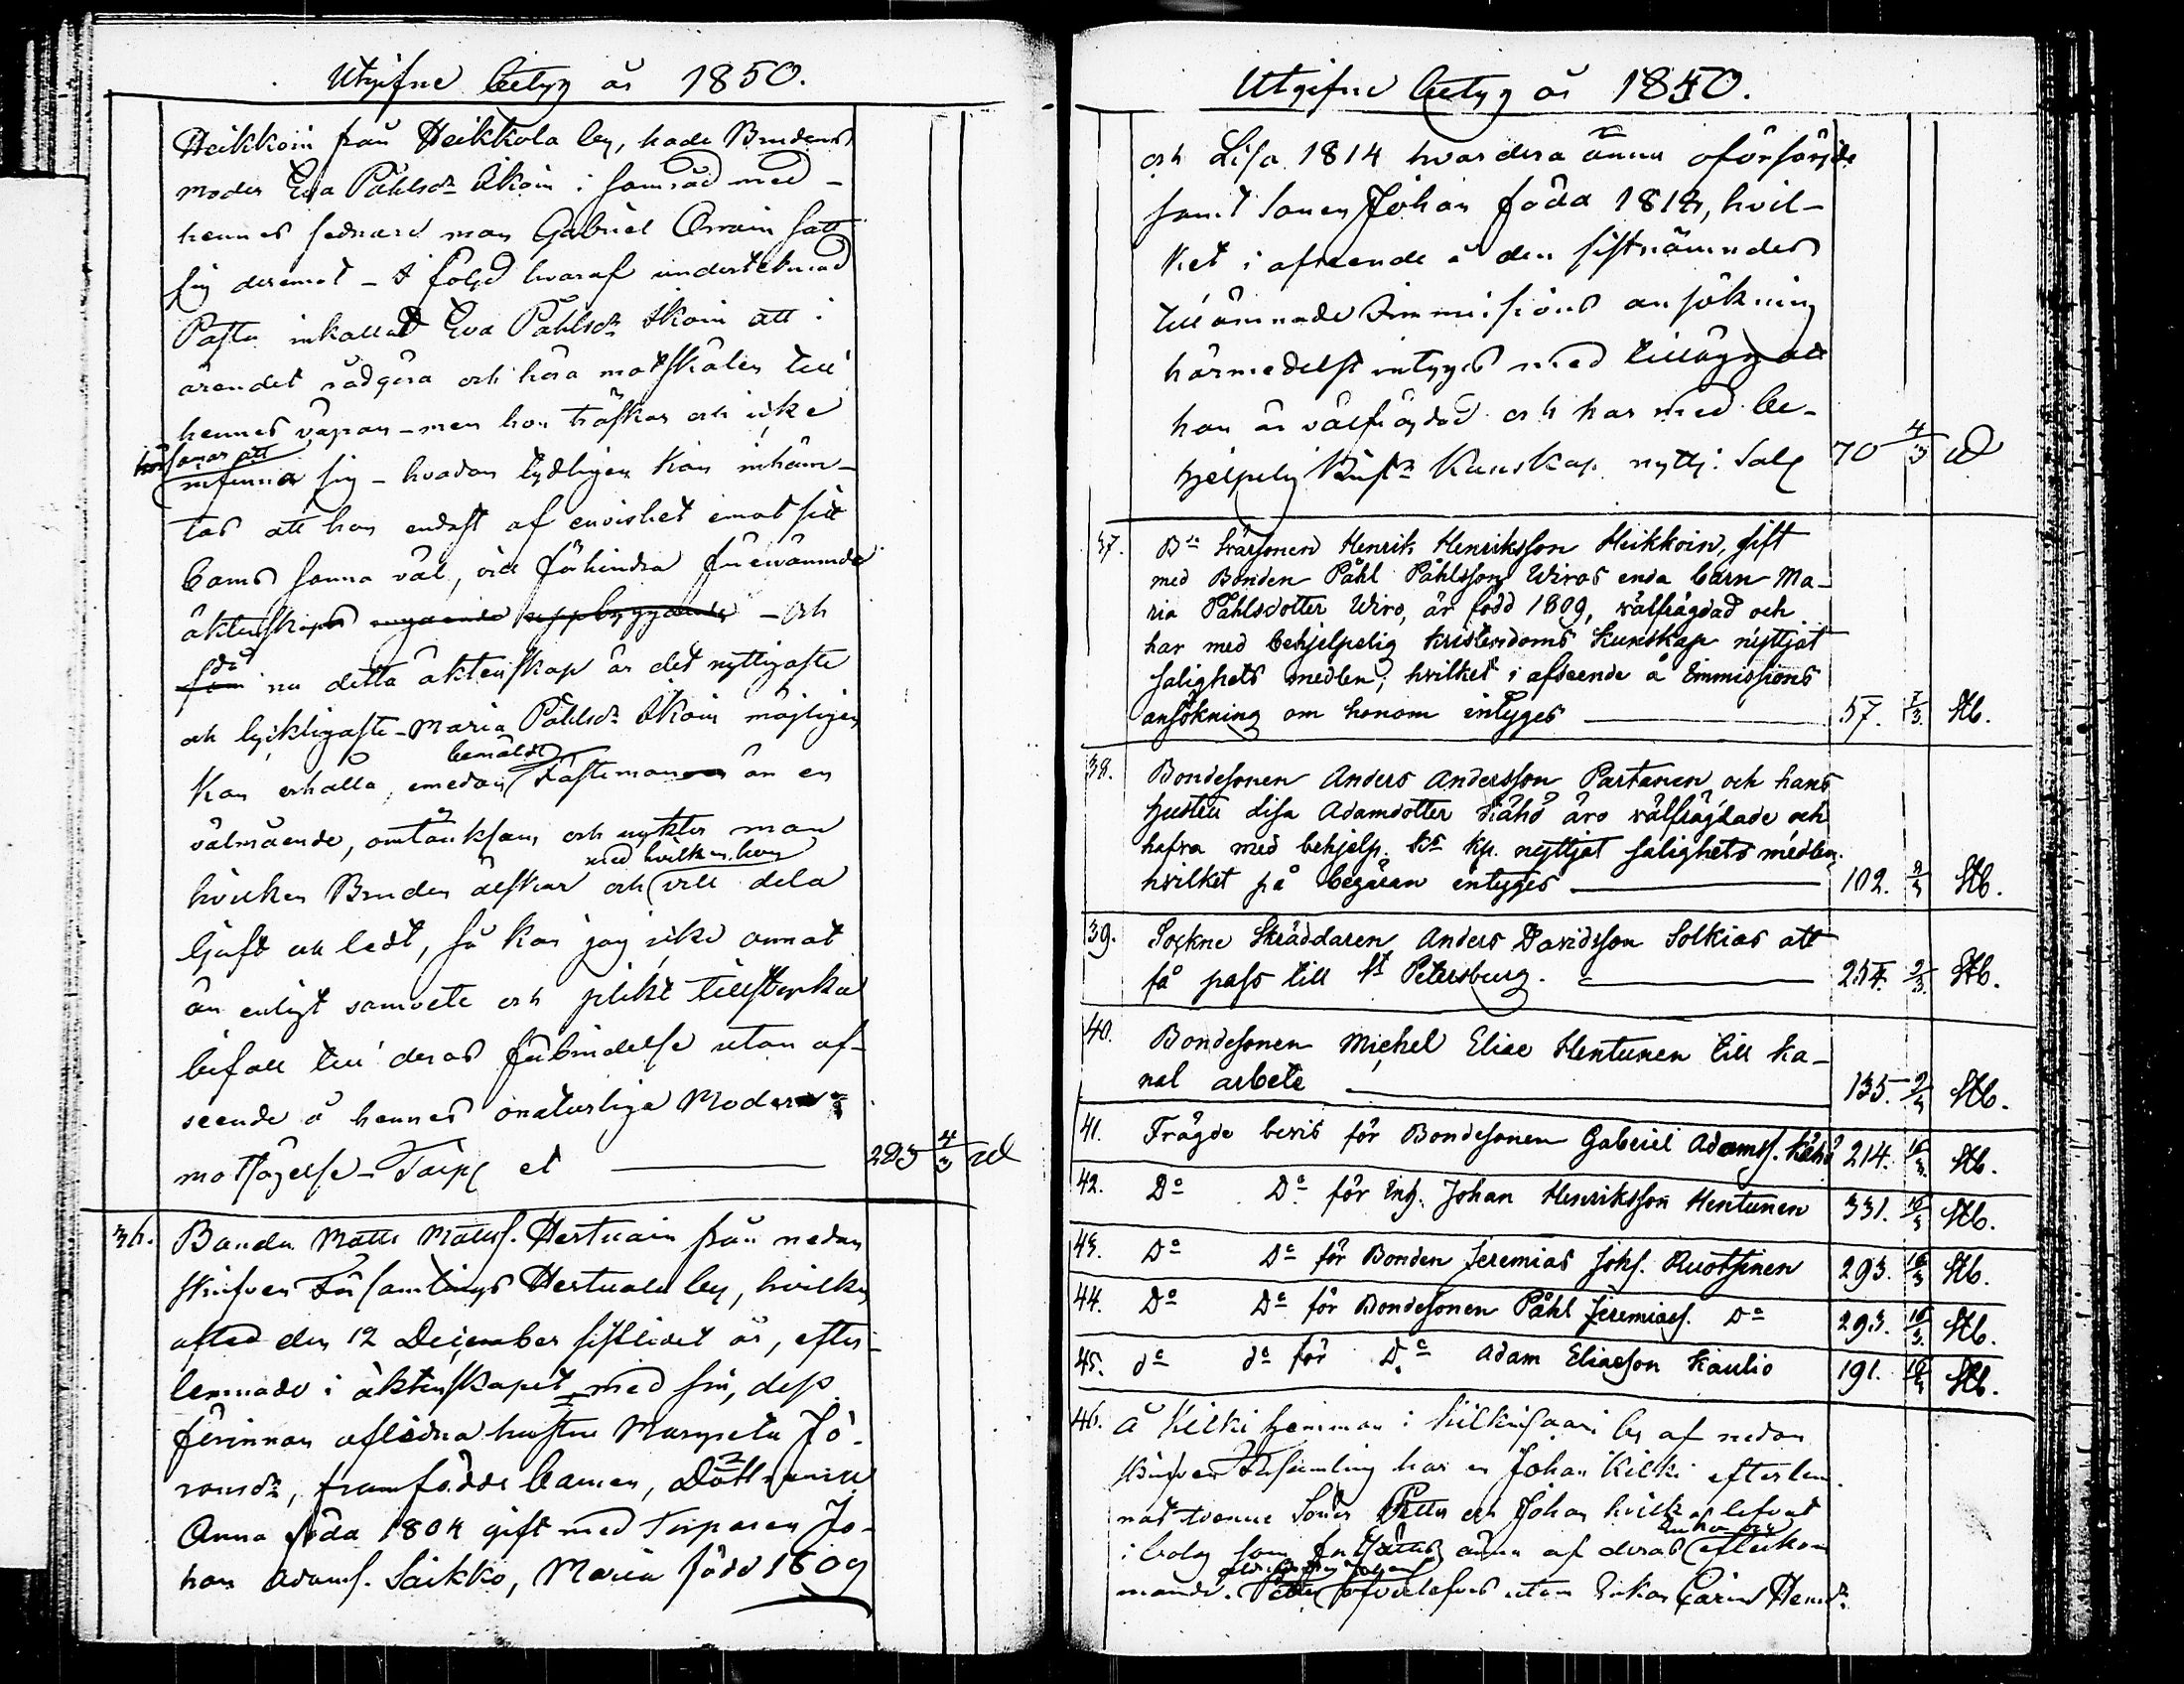 Utgifne betyg år 1850.
Heikkoin från Heikkola by, hade Brudens
moder Eva Påhlsdr Ikoin i samråd med
hennes sednare man Gabriel Orrain satt
sig deremot – I följd hvaraf undertecknad
Pastor inkallat Eva Påhlsdr Ikoin att i
ärendet rådgöra och höra motskälen till
hennes vägran – men hon träskar och icke
hörsamar att
infinna sig – hvadan tydligen kan inhäm-
tas att hon endast af envishet emot sitt
barns sanna väl, vill förhindra förenämnde
äktenskaps ingående uppbyggande – och
då
som nu detta äktenskap är det nyttigaste
och lyckligaste – Maria Påhlsdr Ikoin möjligen
bemälde
kan erhålla, emedan Fästeman är en
välmående, omtänksam och nykter man
med hvilken hon
hvilken Bruden älskar och vill dela
ljuft och ledt, så kan jag icke annat
än enligt samvete och plikt tillstyrka
bifall till deras förbindelse utan af-
seende å hennes onaturliga Moders
motsägelse – Taip et 293 4/3
36. Bonden Matts Mattss. Hertuain från nedan
skrifven Församlings Hertuala by, hvilken
afled den 12 December sistlidet år, efter-
lemnade i äktenskapet med sin, dess
förinnan aflidna hustru Margreta Jö-
ransdr, framfödde barnen, Döttrarna
Anna föda 1804 gift med Torparen Jo-
han Adamss. Saikko, Maria född 1809
Utgifne betyg år 1850.
och Lisa 1814 hvardera ännu oförsörjde
samt Sonen Johan föda 1812, hvil-
ket i afseende å den sistnämndes
tillämnade Immissions ansökning
härmedelst intygas med tillägg att
han är välfrägdad och har med be-
hjelpelig Kunskap nyttj. Salf 70 4/3
37. Bde Svärsonen Henrik Henriksson Heikkoin, gift
med Bonden Påhl Påhlsson Wiros enda barn Ma-
ria Påhlsdotter Wiro, är född 1809, välfrägdad och
har med behjelpelig Kristendoms Kunskap nyttjat
salighets medlen; hvilket i afseende å Immissions
ansökning om honom intyges 57. 7/3. Stb.
38. Bondesonen Anders Andersson Partanen och hans
hustru Lisa Adamdotter Kähö äro välfrägdade och
hafva med behjelp. Kp. nyttjat salighets medlen
hvilket på begäran intyges 102. 9/3 Stb.
39. Sockne Skräddaren Anders Davidsson Solkias att
få pass till St Petersburg. 254. 9/3. Stb.
40. Bondesonen Michel Eliae Hentunen till ka-
nal arbete 135. 9/3 Stb.
41. Frägde bevis för Bondesonen Gabriel Adamss. Kähö 214. 16/3. Stb.
42. Do Do för Inh. Johan Henriksson Hentunen 331. 16/3 Stb.
43. Do Do för Bonden Jeremias Johs. Ruotsinen 293. 16/3 Stb.
44. Do Do för Bondesonen Påhl Jeremiaes. Do 293. 16/3. Stb.
45. do do för Do Adam Eliaeson Kaulio 191. 16/3 Stb.
46. Å Kilki hemman i Kilkinsaari by af nedan
skrifven Församling har en Johan Kilki efterlem-
nat tvenne Söner Petter och Johan hvilka lefvat
i bolag som ännu af deras efterkom
mande. Petter utom Enkan Carin Henrdr